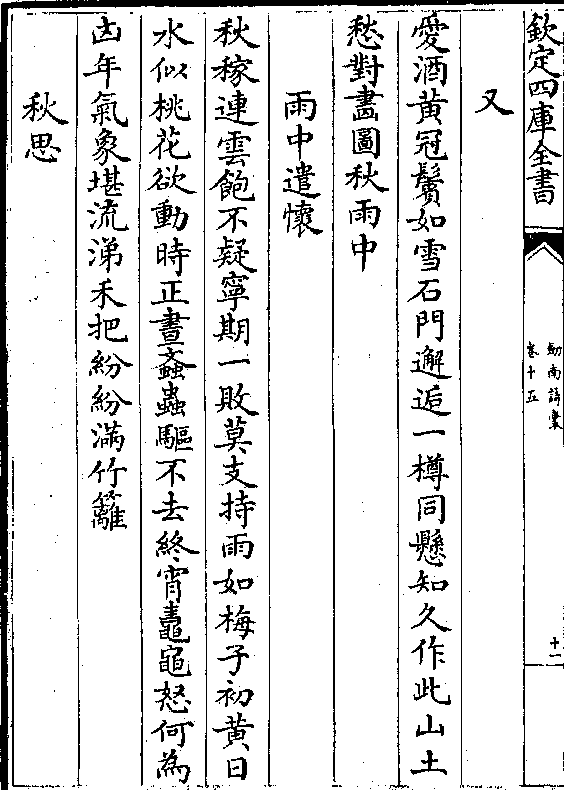 欽定四庫全書
劍南詩稾
卷十五
十一
又
愛酒黃冠鬢如雪石門邂逅一樽同懸知久作此山土
愁對畫圖秋雨中
雨中遣懷
秋稼連雲飽不疑寧期一敗莫支持雨如梅子初黃日
水似桃花欲動時正晝螡蟲驅不去終宵鼃黽怒何為
凶年氣象堪流涕禾把紛紛滿竹籬
秋思